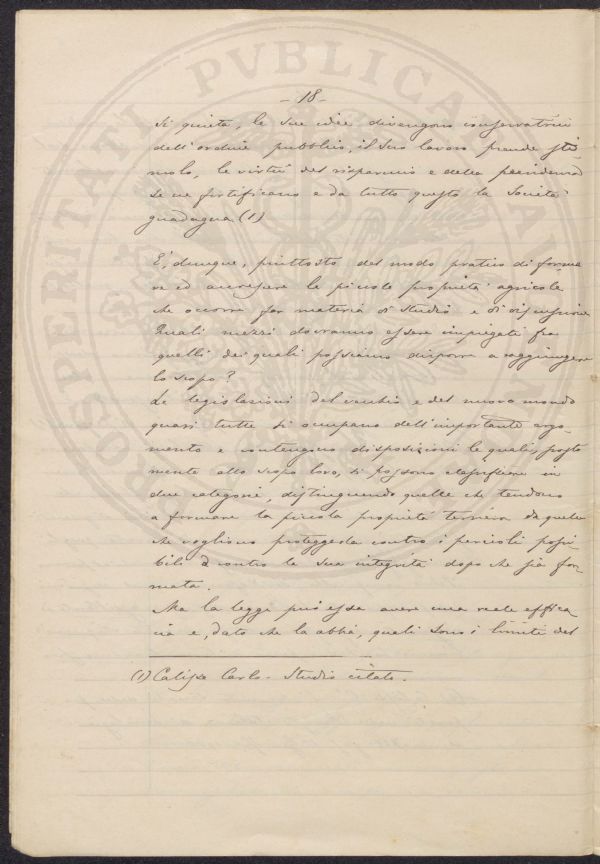 PROSPERITATI PVBLICAE AVGENDAE
- 18 -
si quieta, le sue idee divengono conservatrici
dell'ordine pubblico, il suo lavoro prende sti
molo, le virtù del risparmio e della previdenza
se ne fortificano e da tutto questo la Società
guadagna (1)
È, dunque, piuttosto del modo pratico di forma
re ed accrescere la piccola proprietà agricola
che occorre far materia di studio e di discussione
Quali mezzi dovranno essere impiegati fra
quelli dei quali possiamo disporre a raggiungere
lo scopo?
Le legislazioni del vecchio e del nuovo mondo
quasi tutte si occupano dell'importante argo-
mento e contengono disposizioni le quali,
mente allo scopo loro, si possono classificare in
due categorie, distinguendo quelle che tendono
a formare la piccola proprietà terriera da quelle
che vogliono proteggerla contro i pericoli possi-
bili contro la sua integrità dopo che già for-
mata.
Ma la legge può essa avere una reale effica
cia e, dato che la abbia, quali sono i limiti del
(1) Carlo - Studio citato.